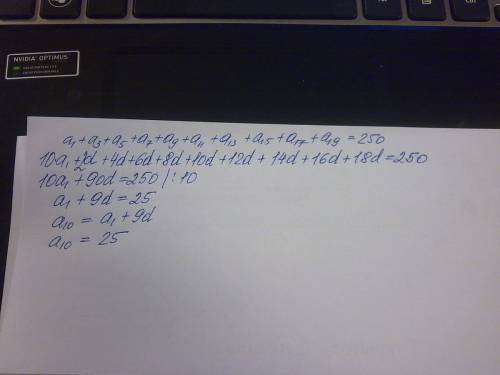 NVIDIA OPTIMUS
a₁ + a₃ + a₅ + a₇ + a₉ + a₁₁ + a₁₃ + a₁₅ + a₁₇ + a₁₉ = 250
10a₁ + 2d + 4d + 6d + 8d + 10d + 12d + 14d + 16d + 18d = 250
10a₁ + 90d = 250 / : 10
a₁ + 9d = 25
a₁₀ = a₁ + 9d
a₁₀ = 25